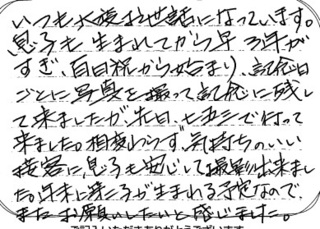 いつも大変お世話になっています。
息子も生まれてから早3年が
すぎ、百日祝から始まり、記念日
ごとに写真を撮って記念に残し
て来ましたが本日、七五三で行って
来ました。相変わらず気持ちのいい
接客に、息子も安心して撮影出来まし
た。年末に第二子が生まれる予定なので、
またお願いしたいと感じました。
ご記入いただきありがとうございます